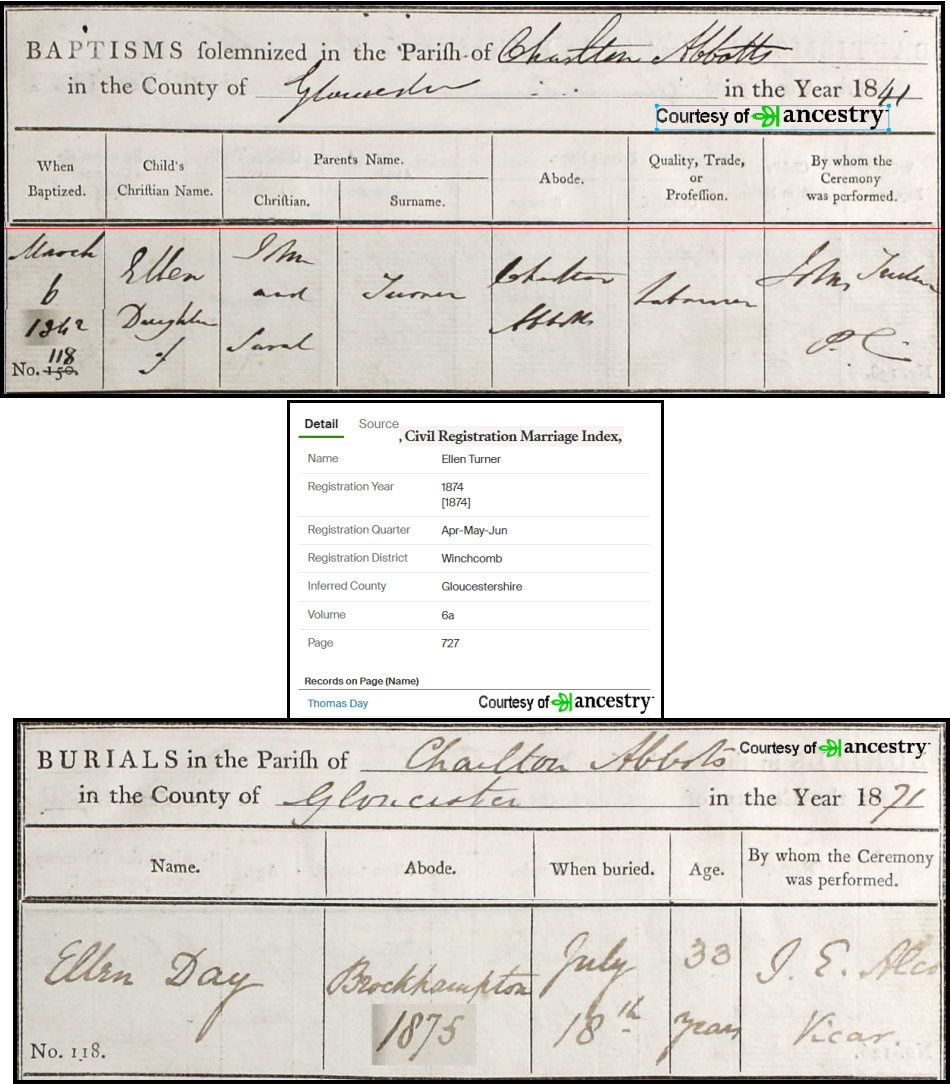 BAPTISMS ſolemnized in the Pariſh of Charlton Abbotts
in the County of Gloucester in the Year 1841
Courtesy of ancestry
When Baptized.
Child's Chriſtian Name.
Parents Name.
Chriſtian.
Surname.
Abode.
Quality, Trade, or Profeſſion.
By whom the Ceremony was performed.
March
6
1842
118
No. 150.
Ellen
Daughter
of
John
and
Sarah
Turner
Charlton
Abbotts
Labourer
John
P. C.
Detail Source
, Civil Registration Marriage Index,
Name Ellen Turner
Registration Year 1874
[1874]
Registration Quarter Apr-May-Jun
Registration District Winchcomb
Inferred County Gloucestershire
Volume 6a
Page 727
Records on Page (Name)
Thomas Day
Courtesy of ancestry
BURIALS in the Pariſh of Charlton Abbots
Courtesy of ancestry
in the County of Gloucester in the Year 1871
Name.
Abode.
When buried.
Age.
By whom the Ceremony
was performed.
Ellen Day
No. 118.
Brockhampton
1875
July
18th
33
years
J. E. Alco
Vicar.